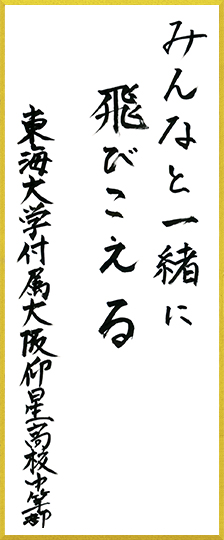 みんなと一緒に
飛びこえる
東海大学付属大阪仰星高校中等部